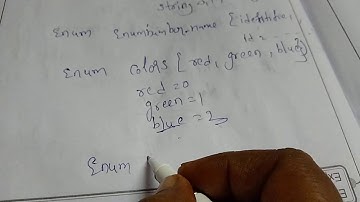 string
Enum Enumbumber-name {identifier,
Id = ....
Enum Colors { red, green, blue}
red=0
green=1
blue = 2
Enum